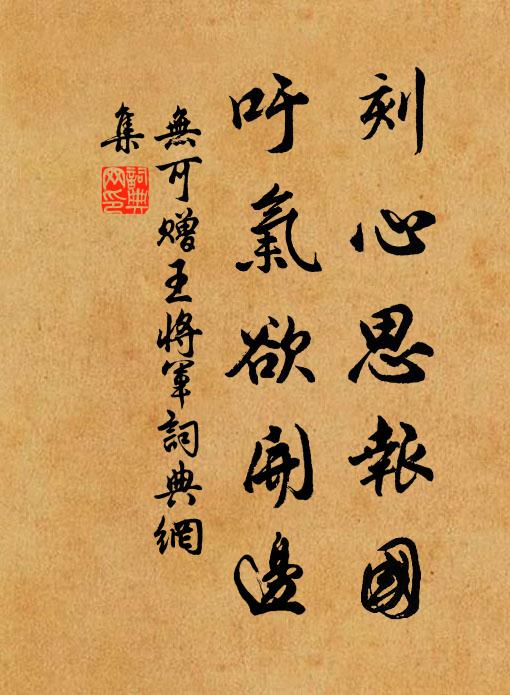 刻心思報國
吁氣欲開邊
無可贈王將軍詞典網
集
詞典網印